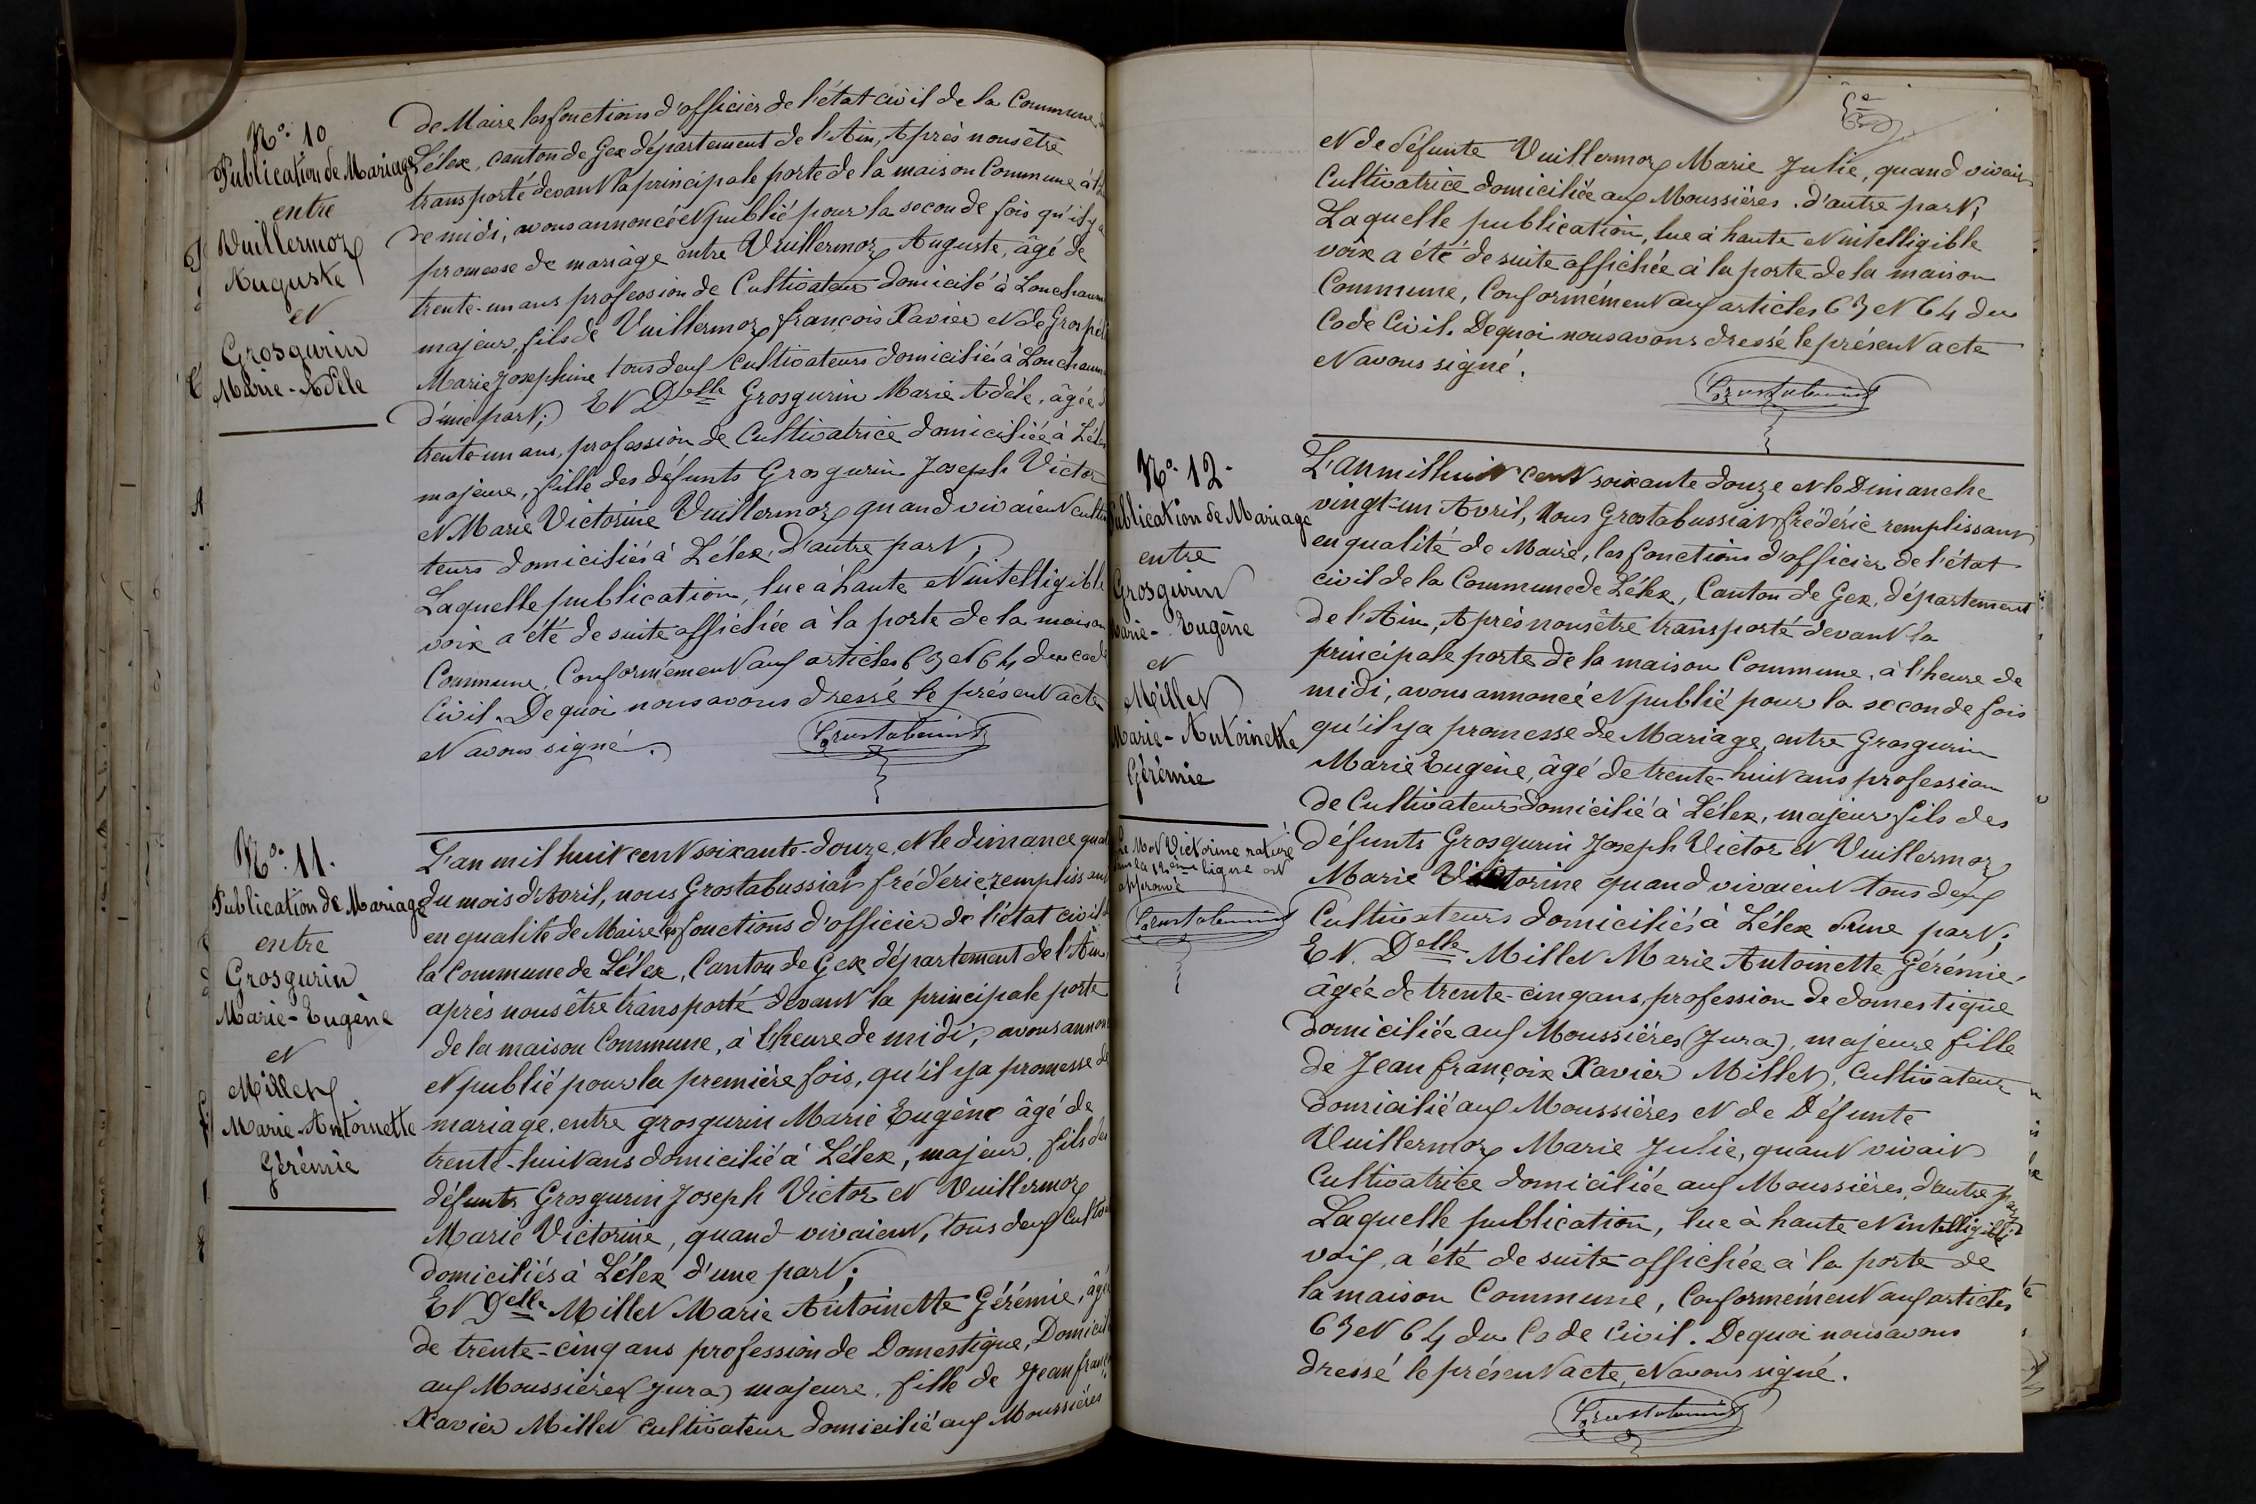 N° 10
Publication de Mariage
entre
Vuillermoz
Auguste
et
Grosgurin
Marie-Adèle
de Maire les fonctions d'officier de l'état civil de la Commune
Lélex, canton de Gex département de l'Ain, Après nous être
transporté devant la principale porte de la maison Commune à
de midi, avons annoncé et publié pour la seconde fois qu'il y a
promesse de mariage entre Vuillermoz Auguste, âgé de
trente-un ans profession de Cultivateur domicilé à
majeur, fils de Vuillermoz françois Xavier et de
Marie Josephine tous deux cultivateurs domiciliés à
d'une part; Et Delle Grosgurin Marie Adèle, âgée
trente-un ans, profession de Cultivatrice domiciliée à Lélex
majeure, fille des défunts Grosgurin Joseph Victor
et Marie Victorine Vuillermoz quand vivaient
teurs domiciliés à Lélex, d'autre part;
Laquelle publication, lue à haute et intelligible
voix a été de suite affichée à la porte de la maison
Commune, Conformément aux articles 63 et 64 du code
Civil. De quoi nous avons dressé le présent acte
et avons signé.
N° 11.
Publication de Mariage
entre
Grosgurin
Marie-Eugène
et
Millet
Marie Antoinette
Gérémie
L'an mil huit cent soixante-douze, et le dimance
du mois d'Avril, nous Grostabussiat frédéric remplissant
en qualité de Maire les fonctions d'officier de l'état civil
la Commune de Lélex, Canton de Gex département de l'Ain,
après nous être transporté devant la principale porte
de la maison Commune, à l'heure de midi, avons
et publié pour la première fois, qu'il y a promesse de
mariage, entre grosgurin Marie Eugène âgé de
trente-huit ans domicilié à Lélex, majeur, fils des
défunts Grosgurin Joseph Victor et Vuillermoz
Marie Victorine, quand vivaient, tous deux
domiciliés à Lélex d'une part;
Et Delle Millet Marie Antoinette Gérémie, âgée
de trente-cinq ans profession de Domestique,
aux Moussières (Jura) majeure, fille de Jean
Xavier Millet cultivateur domicilié aux Moussières
et de défunte Vuillermoz Marie Julie, quand vivait
Cultivatrice domiciliée aux Moussières. d'autre part;
Laquelle publication, lue à haute et intelligible
voix a été de suite affichée à la porte de la maison
Commune, Conformément aux articles 63 et 64 du
Code Civil. De quoi nous avons dressé le présent acte
et avons signé.
N° 12.
Publication de Mariage
entre
Grosgurin
Marie-Eugène
et
Millet
Marie-Antoinette
Gérémie
Le Mot Victorine raturé
dans la 12ème ligne est
approuvé
L'an mil huit cent soixante douze et le Dimanche
vingt-un Avril, Nous Grostabussiat frédéric remplissant
en qualité de Maire, les fonctions d'officier de l'état
civil de la Commune de Lélex, Canton de Gex, département
de l'Ain, Après nous être transporté devant la
principale porte de la maison Commune, à l'heure de
midi, avons annoncé et publié pour la seconde fois
qu'il y a promesse de Mariage, entre Grosgurin
Marie Eugène, âgé de trente-huit ans profession
de Cultivateur domicilié à Lélex, majeur fils des
défunts Grosgurin Joseph Victor et Vuillermoz
Marie Victorine quand vivaient tous deux
Cultivateurs domiciliés à Lélex d'une part;
Et. Delle Millet Marie Antoinette Gérémie,
âgée de trente-cinq ans, profession de domestique
domiciliée aux Moussières (Jura), majeure fille
de Jean françoix Xavier Millet, Cultivateur
domicilié aux Moussières et de Défunte
Vuillermoz Marie Julie, quant vivait
Cultivatrice domiciliée aux Moussières, d'autre part
Laquelle publication, lue à haute et intelligible
voix, a été de suite affichée à la porte de
la maison Commune, Conformément aux articles
63 et 64 du Code Civil. De quoi nous avons
dressé le présent acte, et avons signé.